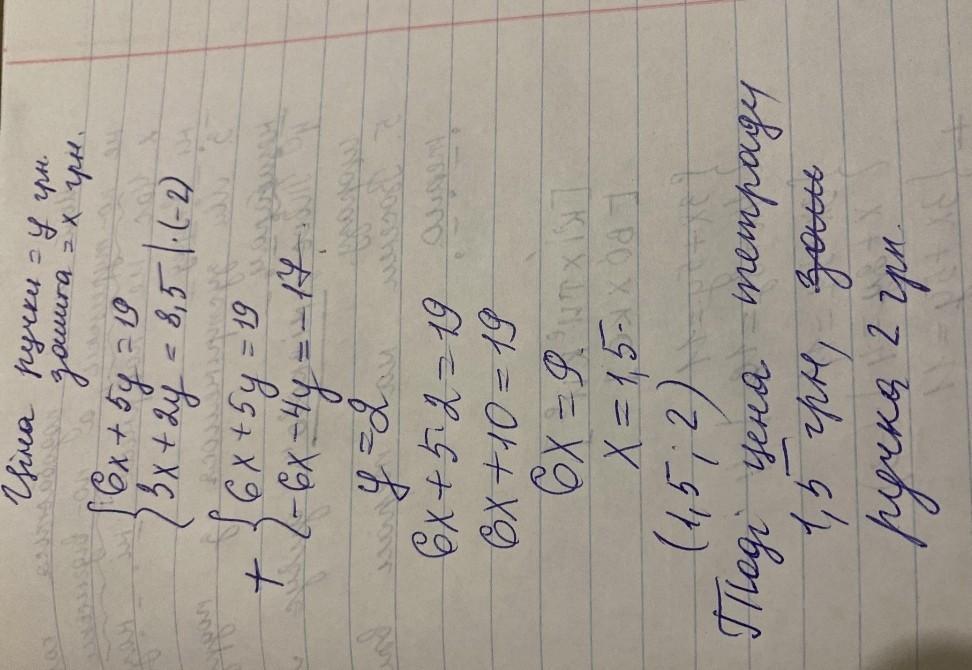 Ціна ручки = y грн
зошита = x грн.
{6x + 5y = 19
{3x + 2y = 8,5 |·(-2)
+ {6x + 5y = 19
{-6x - 4y = -17
y = 2
6x + 5·2 = 19
6x + 10 = 19
6x = 9
x = 1,5
(1,5 ; 2)
Тоді цена тетраду
1,5 грн, зош
ручка 2 грн.